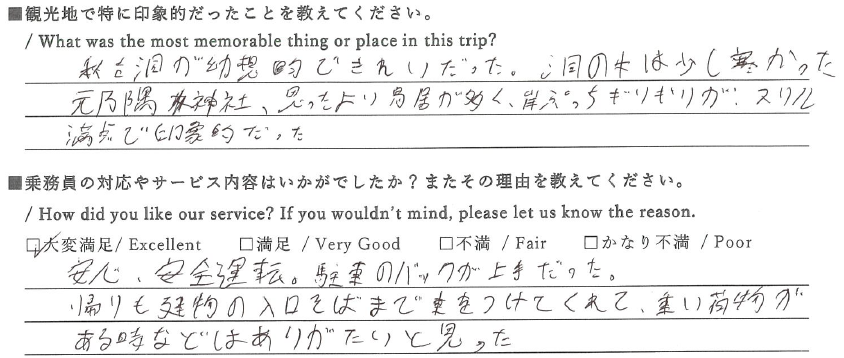 ■観光地で特に印象的だったことを教えてください。
/ What was the most memorable thing or place in this trip?
秋吉洞が幻想的できれいだった。洞の中は少し寒かった
元乃隅神社、思ったより鳥居が多く、崖ぷっちギリギリが、スリル
満点で印象的だった
■乗務員の対応やサービス内容はいかがでしたか？またその理由を教えてください。
/ How did you like our service? If you wouldn't mind, please let us know the reason.
☑大変満足 / Excellent □満足 / Very Good □不満 / Fair □かなり不満 / Poor
安心、安全運転。駐車のバックが上手だった。
帰りも建物の入口そばまで車をつけてくれて、重い荷物が
ある時などはありがたいと思った